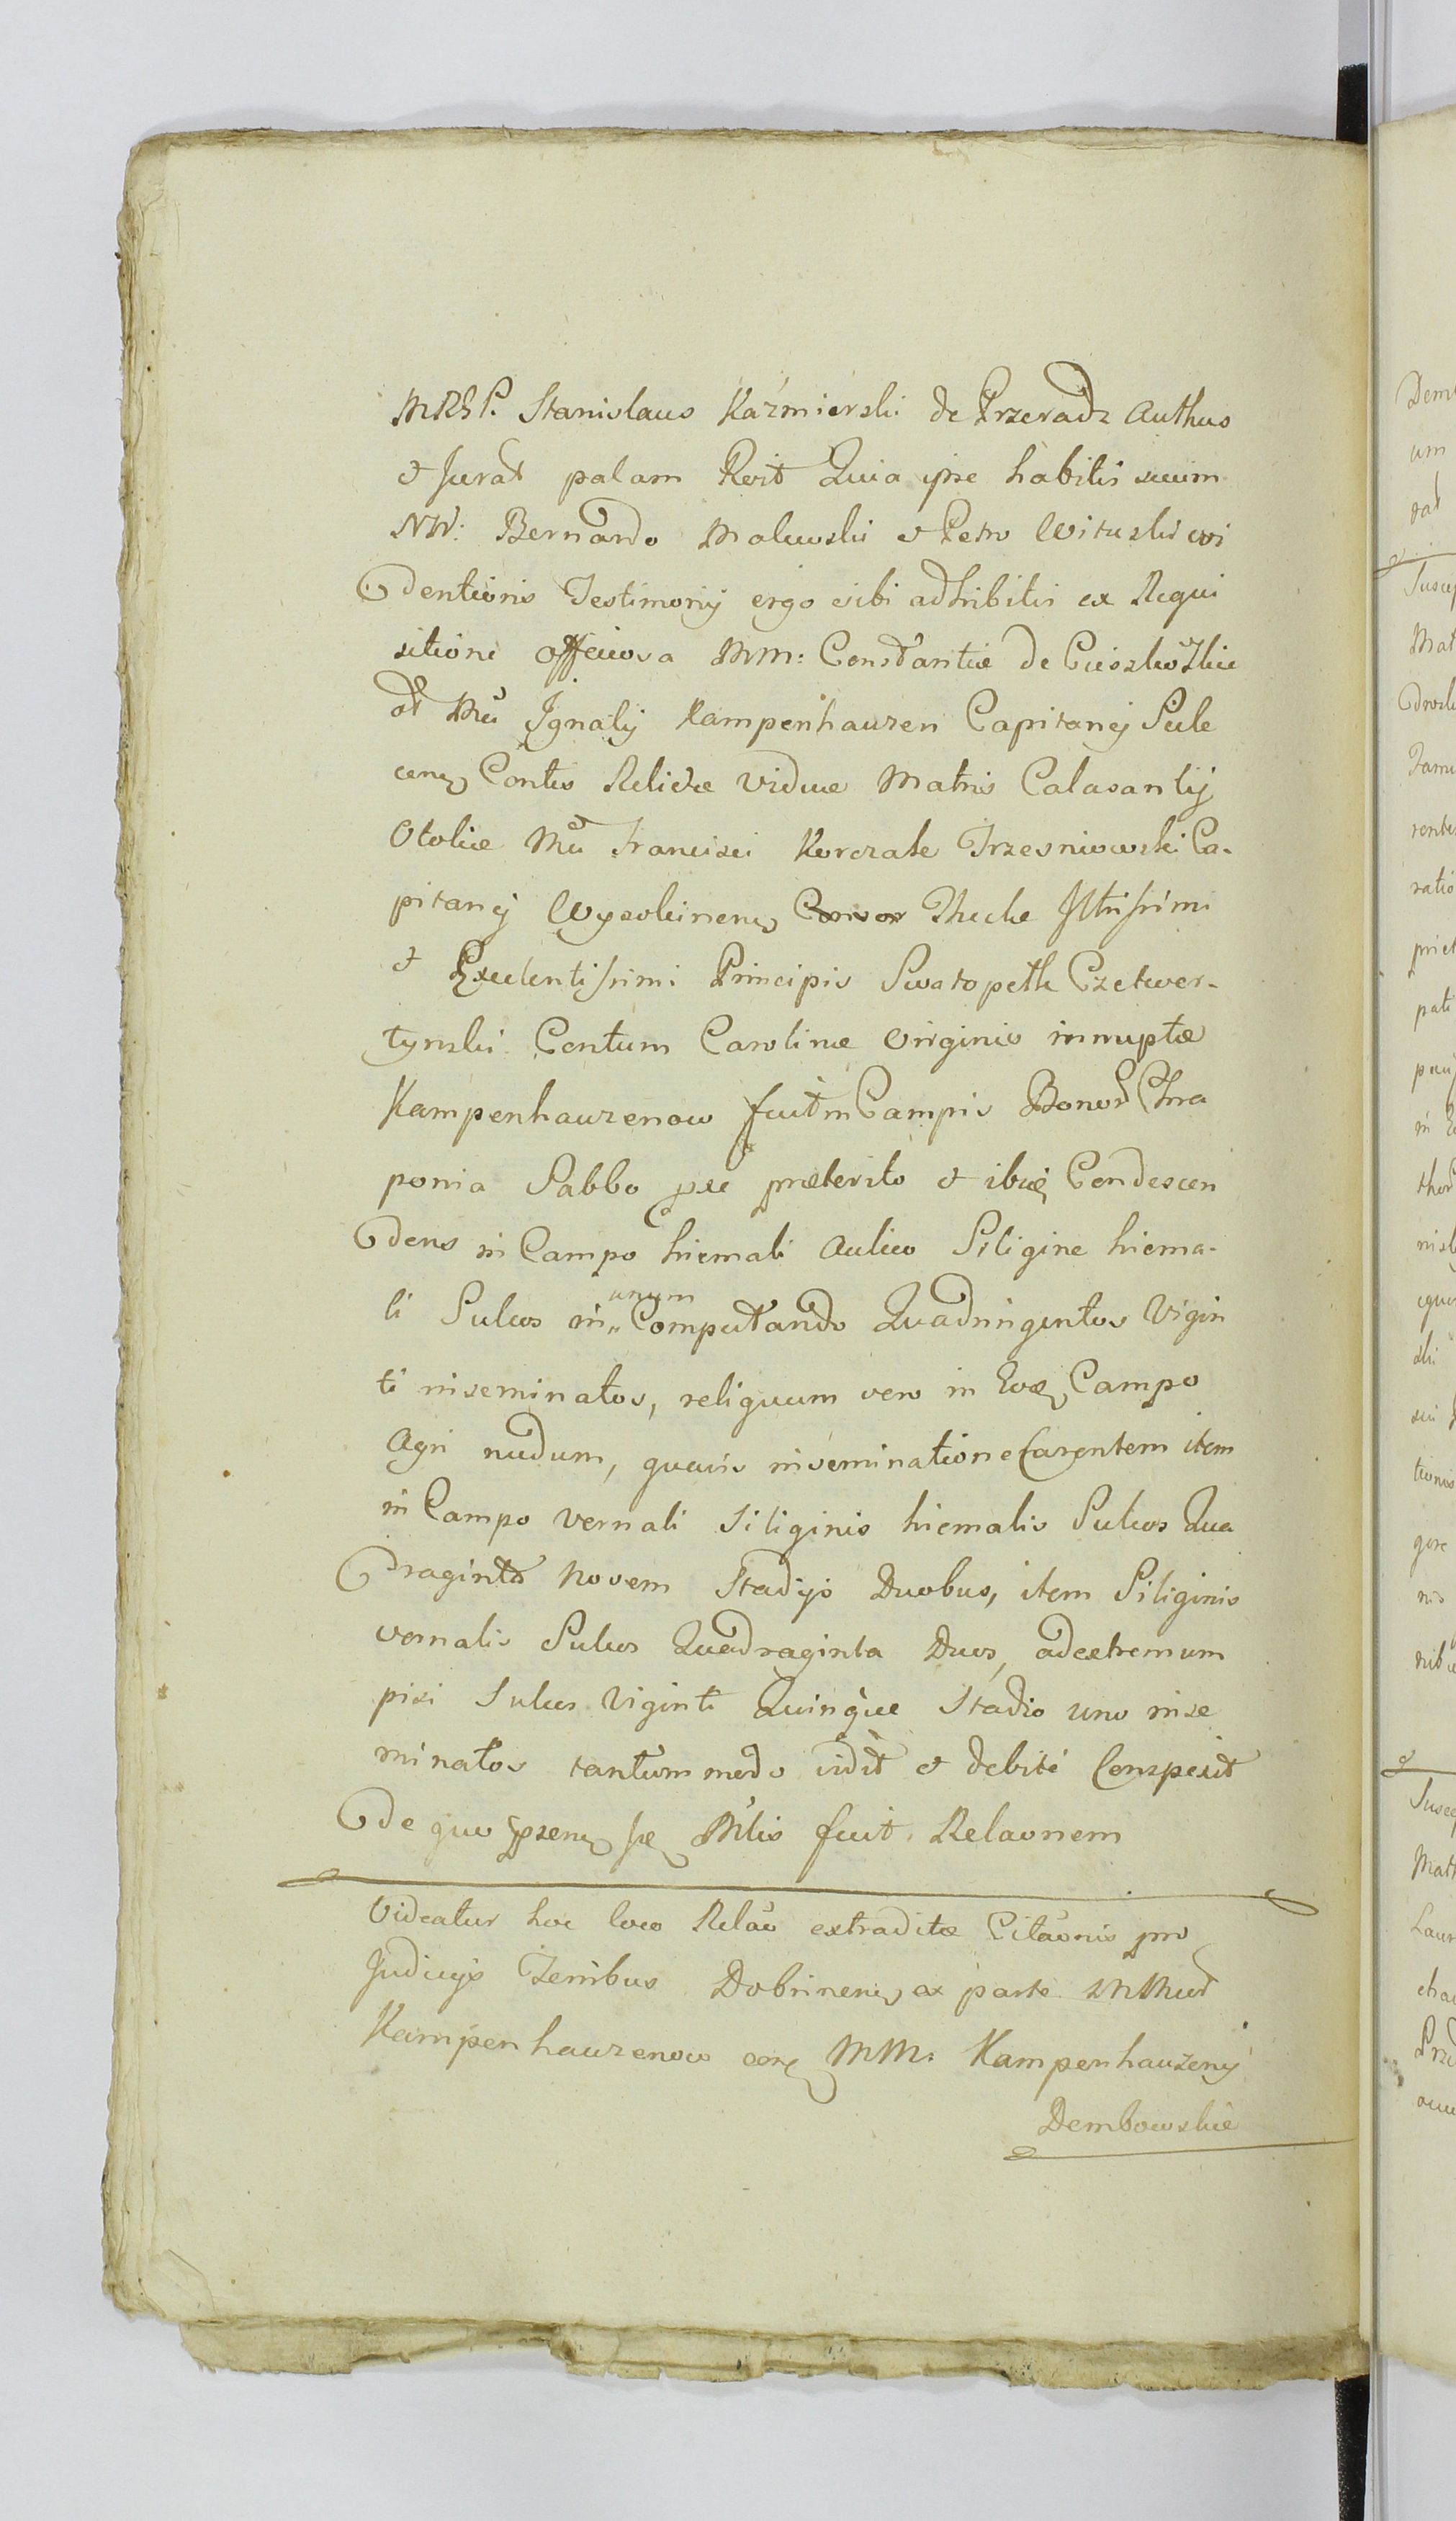 MRGP. Stanislaus Kaźmierski de Przeradz Authus
et Jurat palam Reit Quia ipse habitis secum
NN: Bernardo Malewski et Petro Wituski evi
dentioris Testimonij ergo sibi adhibitis ex Requi
sitione officiosa MM: Constantiæ de Cieszkowskie
ol Mci Ignatij Kampenhauzen Capitanej Sule
cens Contis Relictæ viduæ Matris Calasantij
Otoliæ Mci Francisci Korczak Trzesniowski Ca-
pitanej Wyzokinens Thecke Illtrissimi
et Excelentissimi Principis Swatopelk Czetwer-
tynski Contum Carolinæ virginis innuptæ
Kampenhauzenow fuit in Campis Bonor Chra
ponia Sabbo pxe præterito et ibiq Condescen
dens in Campo hiemali Aulico Siligine hiema-
li Sulcos in unum Computando Quadringentos Vigin
ti inseminatos, reliquum vero in Eoq Campo
Agri nudum, quavis inseminatione Carentem item
in Campo vernali siliginis hiemalis Sulcos Qua
draginta Novem Stadijs Duobus, item Siliginis
vernalis Sulcos Quadraginta Duos, adextremum
pisi Sulcos Viginti Quinque Stadio uno inse
minatos tantummodo vidit et debite Conspexit
de quo pzens fuit. Relaonem
Videatur hoc loco Relao extraditæ Citaonis pro
Judicijs Terribus Dobrinens ex parte
Kampenhauzenow MM. Kampenhauzenij
Dembowskie